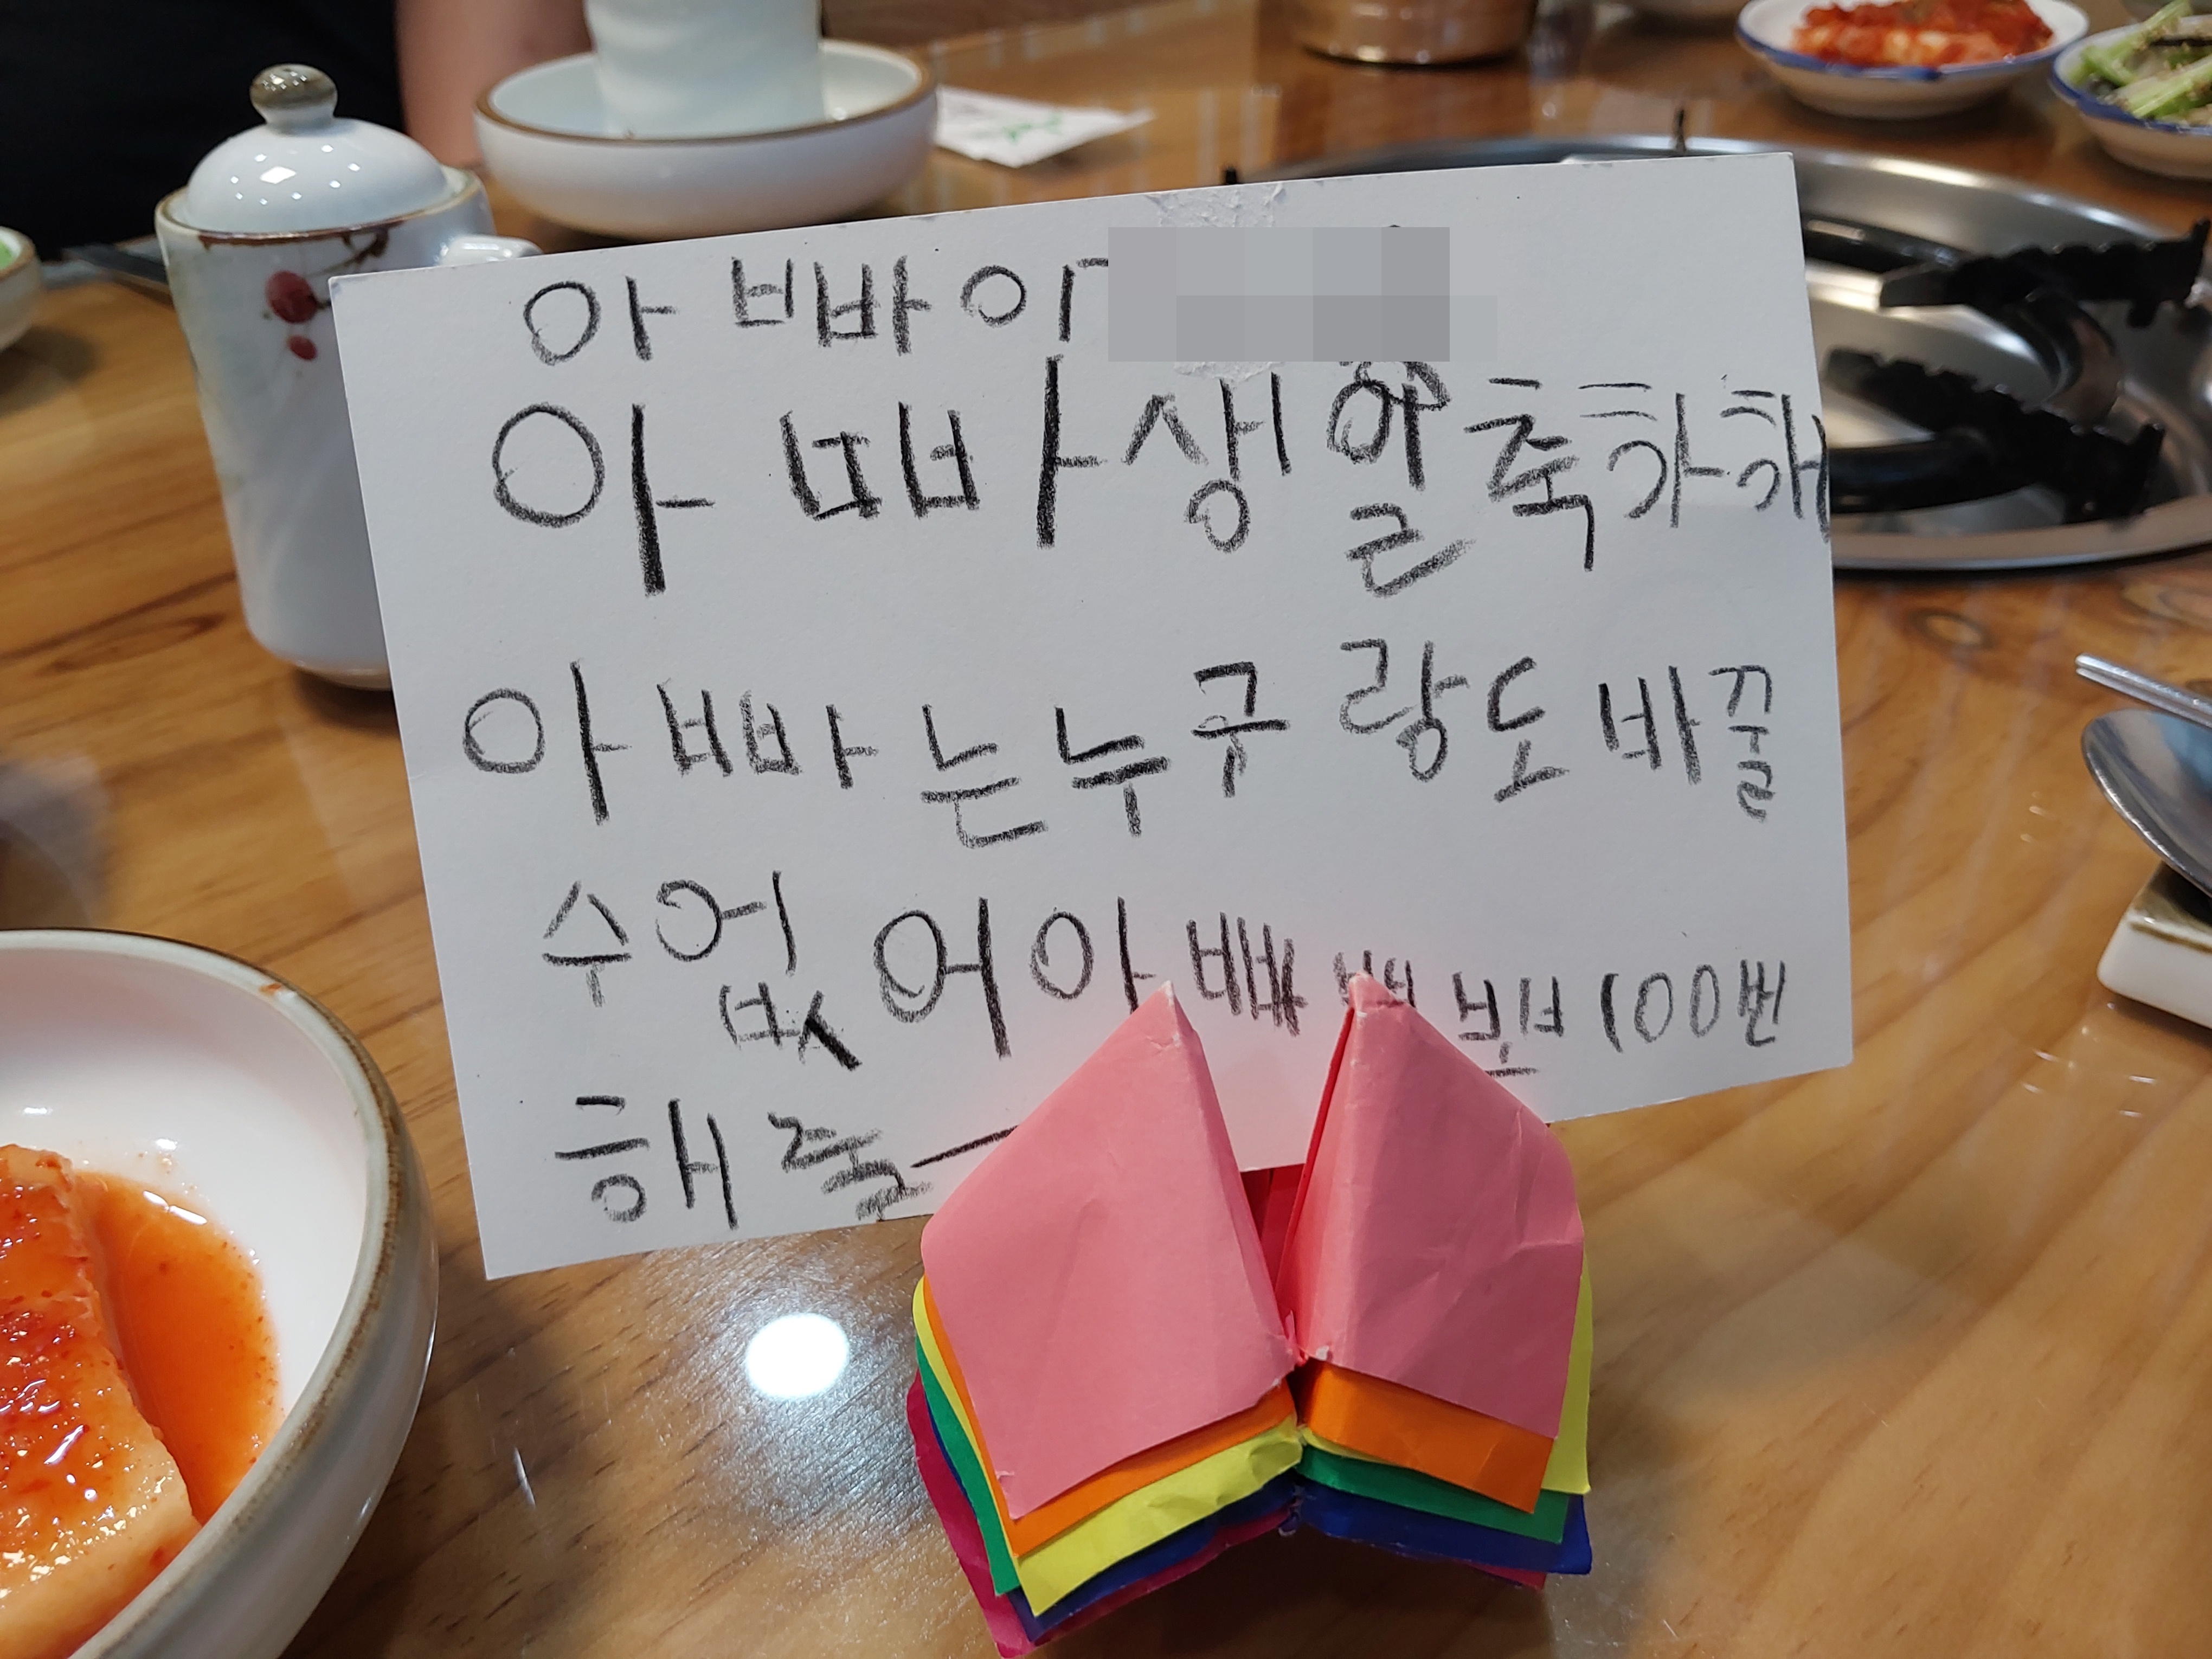 아빠
아빠생일축하해
아빠는누구랑도바꿀
수없어아빠 뽀100번
해줄